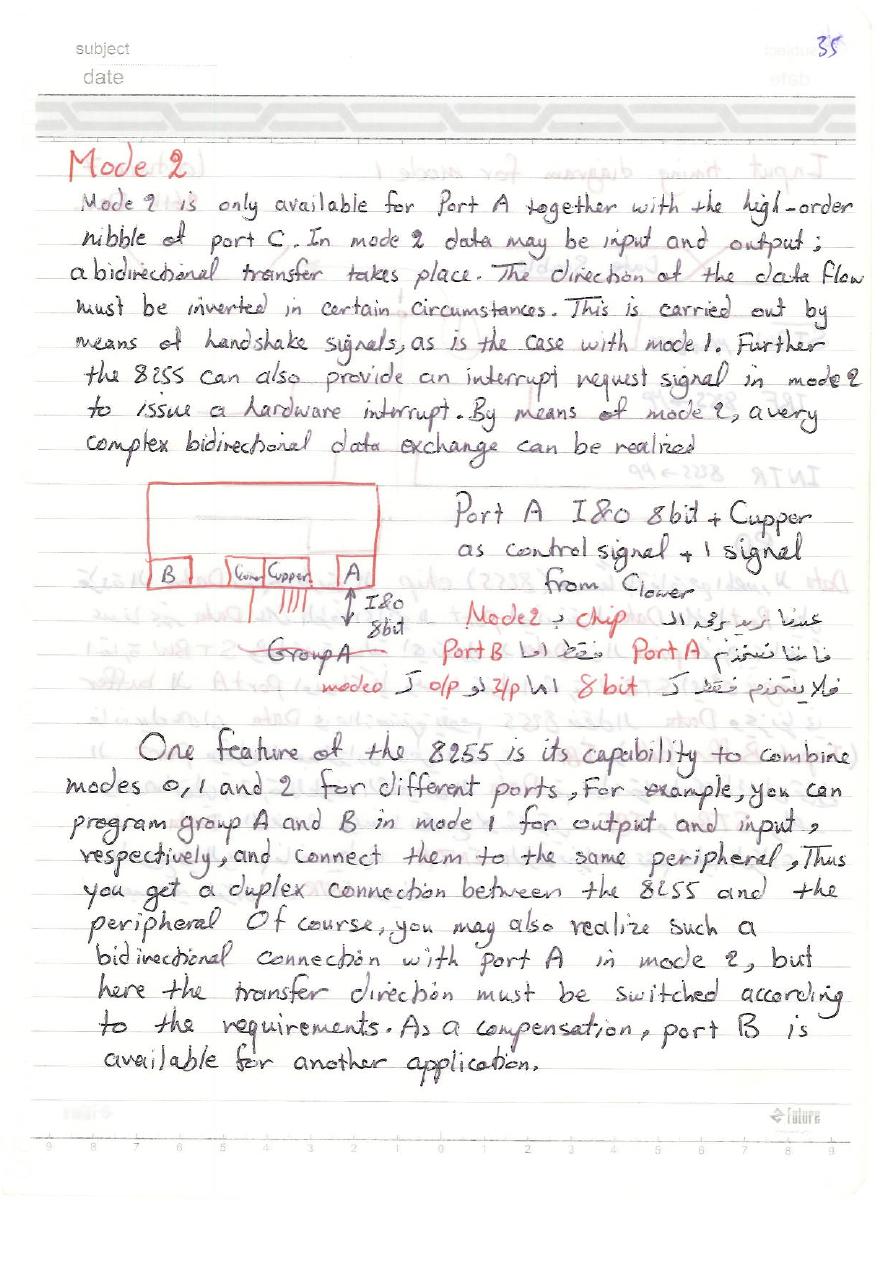 35
subject
date
Mode 2
Mode 2 is only available for Port A together with the high-order
nibble of port C. In mode 2 data may be input and output;
a bidirectional transfer takes place. The direction of the data flow
must be inverted in certain circumstances. This is carried out by
means of handshake signals, as is the case with mode 1. Further
the 8255 can also provide an interrupt request signal in mode 2
to issue a hardware interrupt. By means of mode 2, a very
complex bidirectional data exchange can be realized
B Clower Cupper A
I&O
8bit
Group A
Port A I&O 8bit + Cupper
as control signal + 1 signal
from Clower
عندما نريد برمجة الـ chip بـ Mode2
فاننا نستخدم Port A فقط اما Port B
فلا يستخدم فقط كـ 8bit اما i/p او o/p كـ mode0
One feature of the 8255 is its capability to combine
modes 0,1 and 2 for different ports, For example, you can
program group A and B in mode 1 for output and input,
respectively, and connect them to the same peripheral, Thus
you get a duplex connection between the 8255 and the
peripheral Of course, you may also realize such a
bidirectional connection with port A in mode 2, but
here the transfer direction must be switched according
to the requirements. As a compensation, port B is
available for another application.
future
9 8 7 6 5 4 3 2 1 0 1 2 3 4 5 6 7 8 9